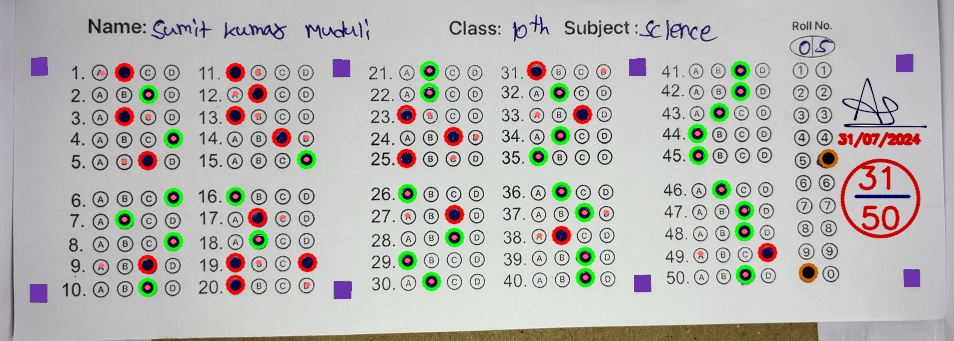 Name: Sumit kumar Muduli Class: 10th Subject: Science Roll No.
05
1. A C D
2. A B D
3. A C D
4. A B C
5. A B D
6. A B C
7. A C D
8. A B C
9. A B D
10. A B D
11. B C D
12. A C D
13. B C D
14. A B D
15. A B C
16. B C D
17. A C D
18. A C D
19. B C
20. B C D
21. A C D
22. A C D
23. B C D
24. A B D
25. B C D
26. B C D
27. A B D
28. A B D
29. B C D
30. A C D
31. B C D
32. A C D
33. A B D
34. A C D
35. B C D
36. A C D
37. A B D
38. A C D
39. A B D
40. A B D
41. A B D
42. A B D
43. A C D
44. B C D
45. B C D
46. A C D
47. A B D
48. A B D
49. A B C
50. A B D
1 1
2 2
3 3
4 4
5
6 6
7 7
8 8
9 9
0
31/07/2024
31
50